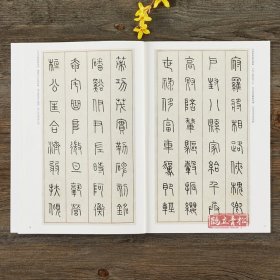 府羅將相路俠槐卿
戶封八縣家給千兵
高冠陪輦驅轂振纓
世祿侈富車駕肥輕
策功茂實勒碑刻銘
磻溪伊尹佐時阿衡
奄宅曲阜微旦孰營
桓公匡合濟弱扶傾